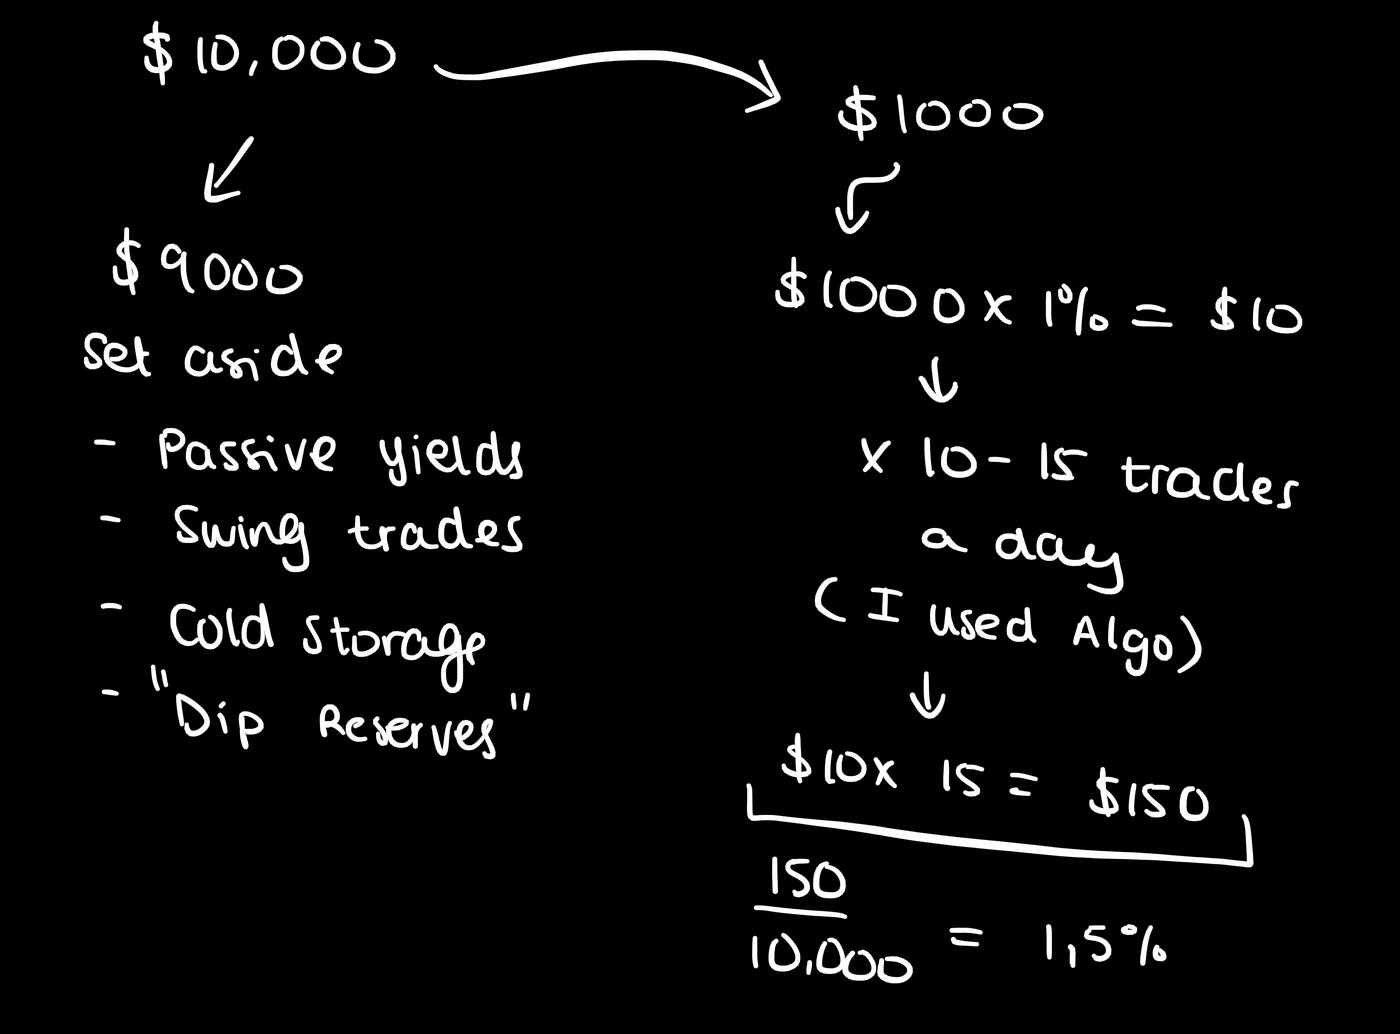 $10,000
$9000
Set aside
- Passive yields
- Swing trades
- Cold storage
- "Dip Reserves"
$1000
$1000 x 1% = $10
x 10 - 15 trades
a day
(I used Algo)
$10x 15 = $150
150
10,000 = 1,5%